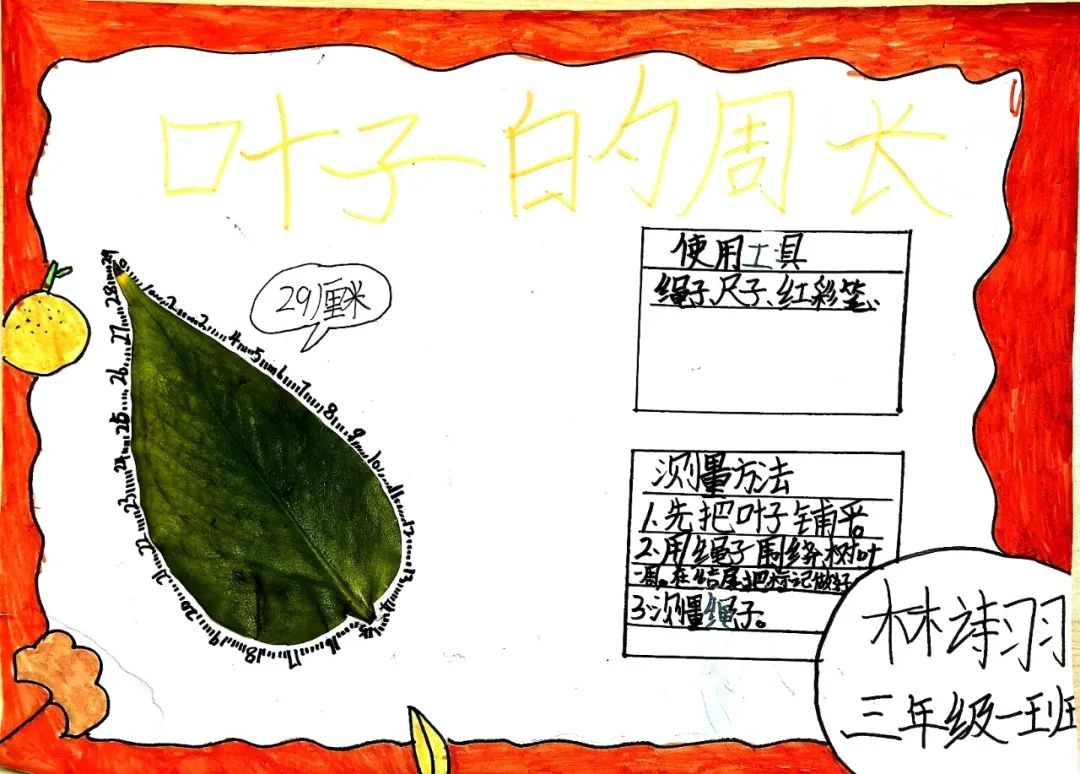 叶子的周长
29厘米
使用工具
绳子、尺子、红彩笔、
测量方法
1、先把叶子铺平。
2、用绳子围绕树叶
一周。在结尾把标记做好
3测量绳子。
林诗羽
三年级一班
0 1 2 3 4 5 6 7 8 9 10 11 12 13 14 15 16 17 18 19 20 21 22 23 24 25 26 27 28 29